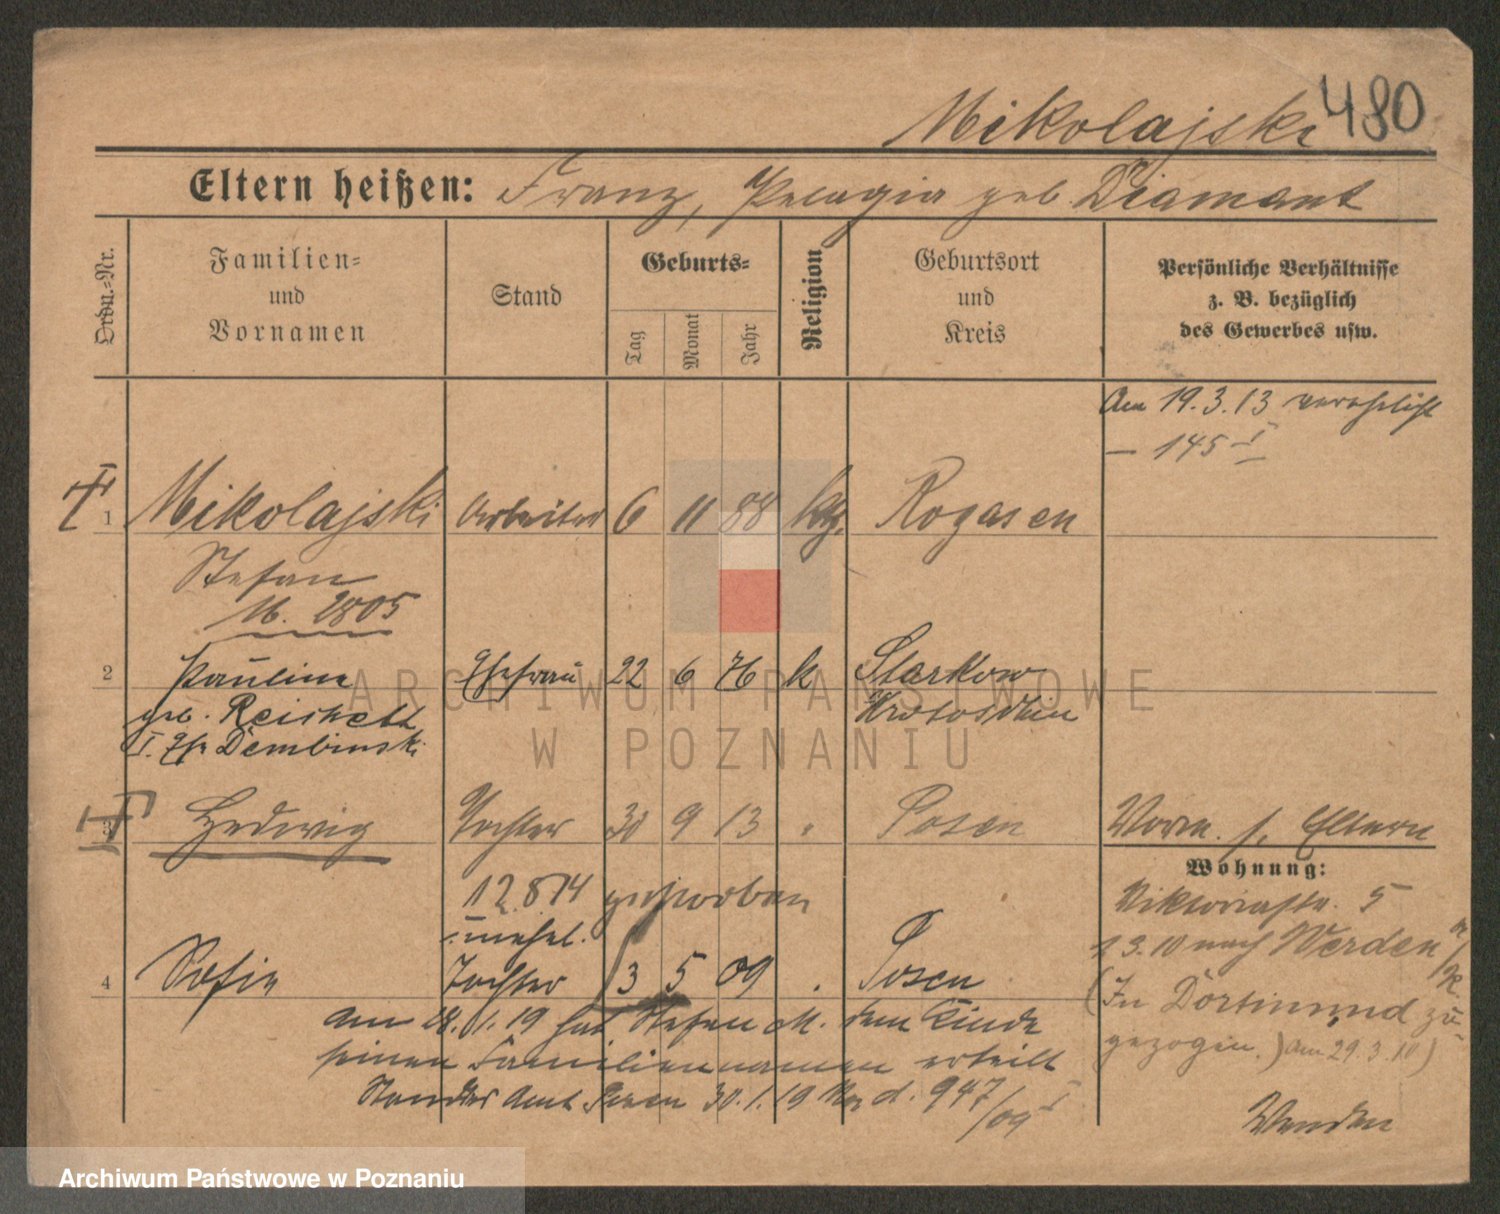 Mikolajski 480
Eltern heißen: Franz, Pelagia geb. Diamant
Ordn.-Nr.
Familien-
und
Vornamen
Stand
Geburts-
Tag
Monat
Jahr
Religion
Geburtsort
und
Kreis
Persönliche Verhältnisse
z. B. bezüglich
des Gewerbes usw.
Am 19.3.13 verehelicht
— 145 I
1 Mikolajski Arbeiter 6 11 88 kth. Rogasen
Stefan
M. 2805
2 Pauline Ehefrau 22 6 76 k Starkow
geb. Reichelt Krotoschin
I. Ehe Dembinski
3 Hedwig Tochter 30 9 13 " Posen Worm. s. Eltern
Wohnung:
12 8 14 gestorben Viktoriastr. 5
unehel. 1 3.10 nach Werden a/R
4 Sofie Tochter 3 5 09 . Posen
(In Dortmund zu-
gezogen.) am 29.3.10)
am 28.1.19 hat Stefan M. dem Kinde
seinen Familiennamen erteilt
Standes Amt Posen 30.1.19 d. 947/09 I
Archiwum Państwowe w Poznaniu
ARCHIWUM PAŃSTWOWE
W POZNANIU